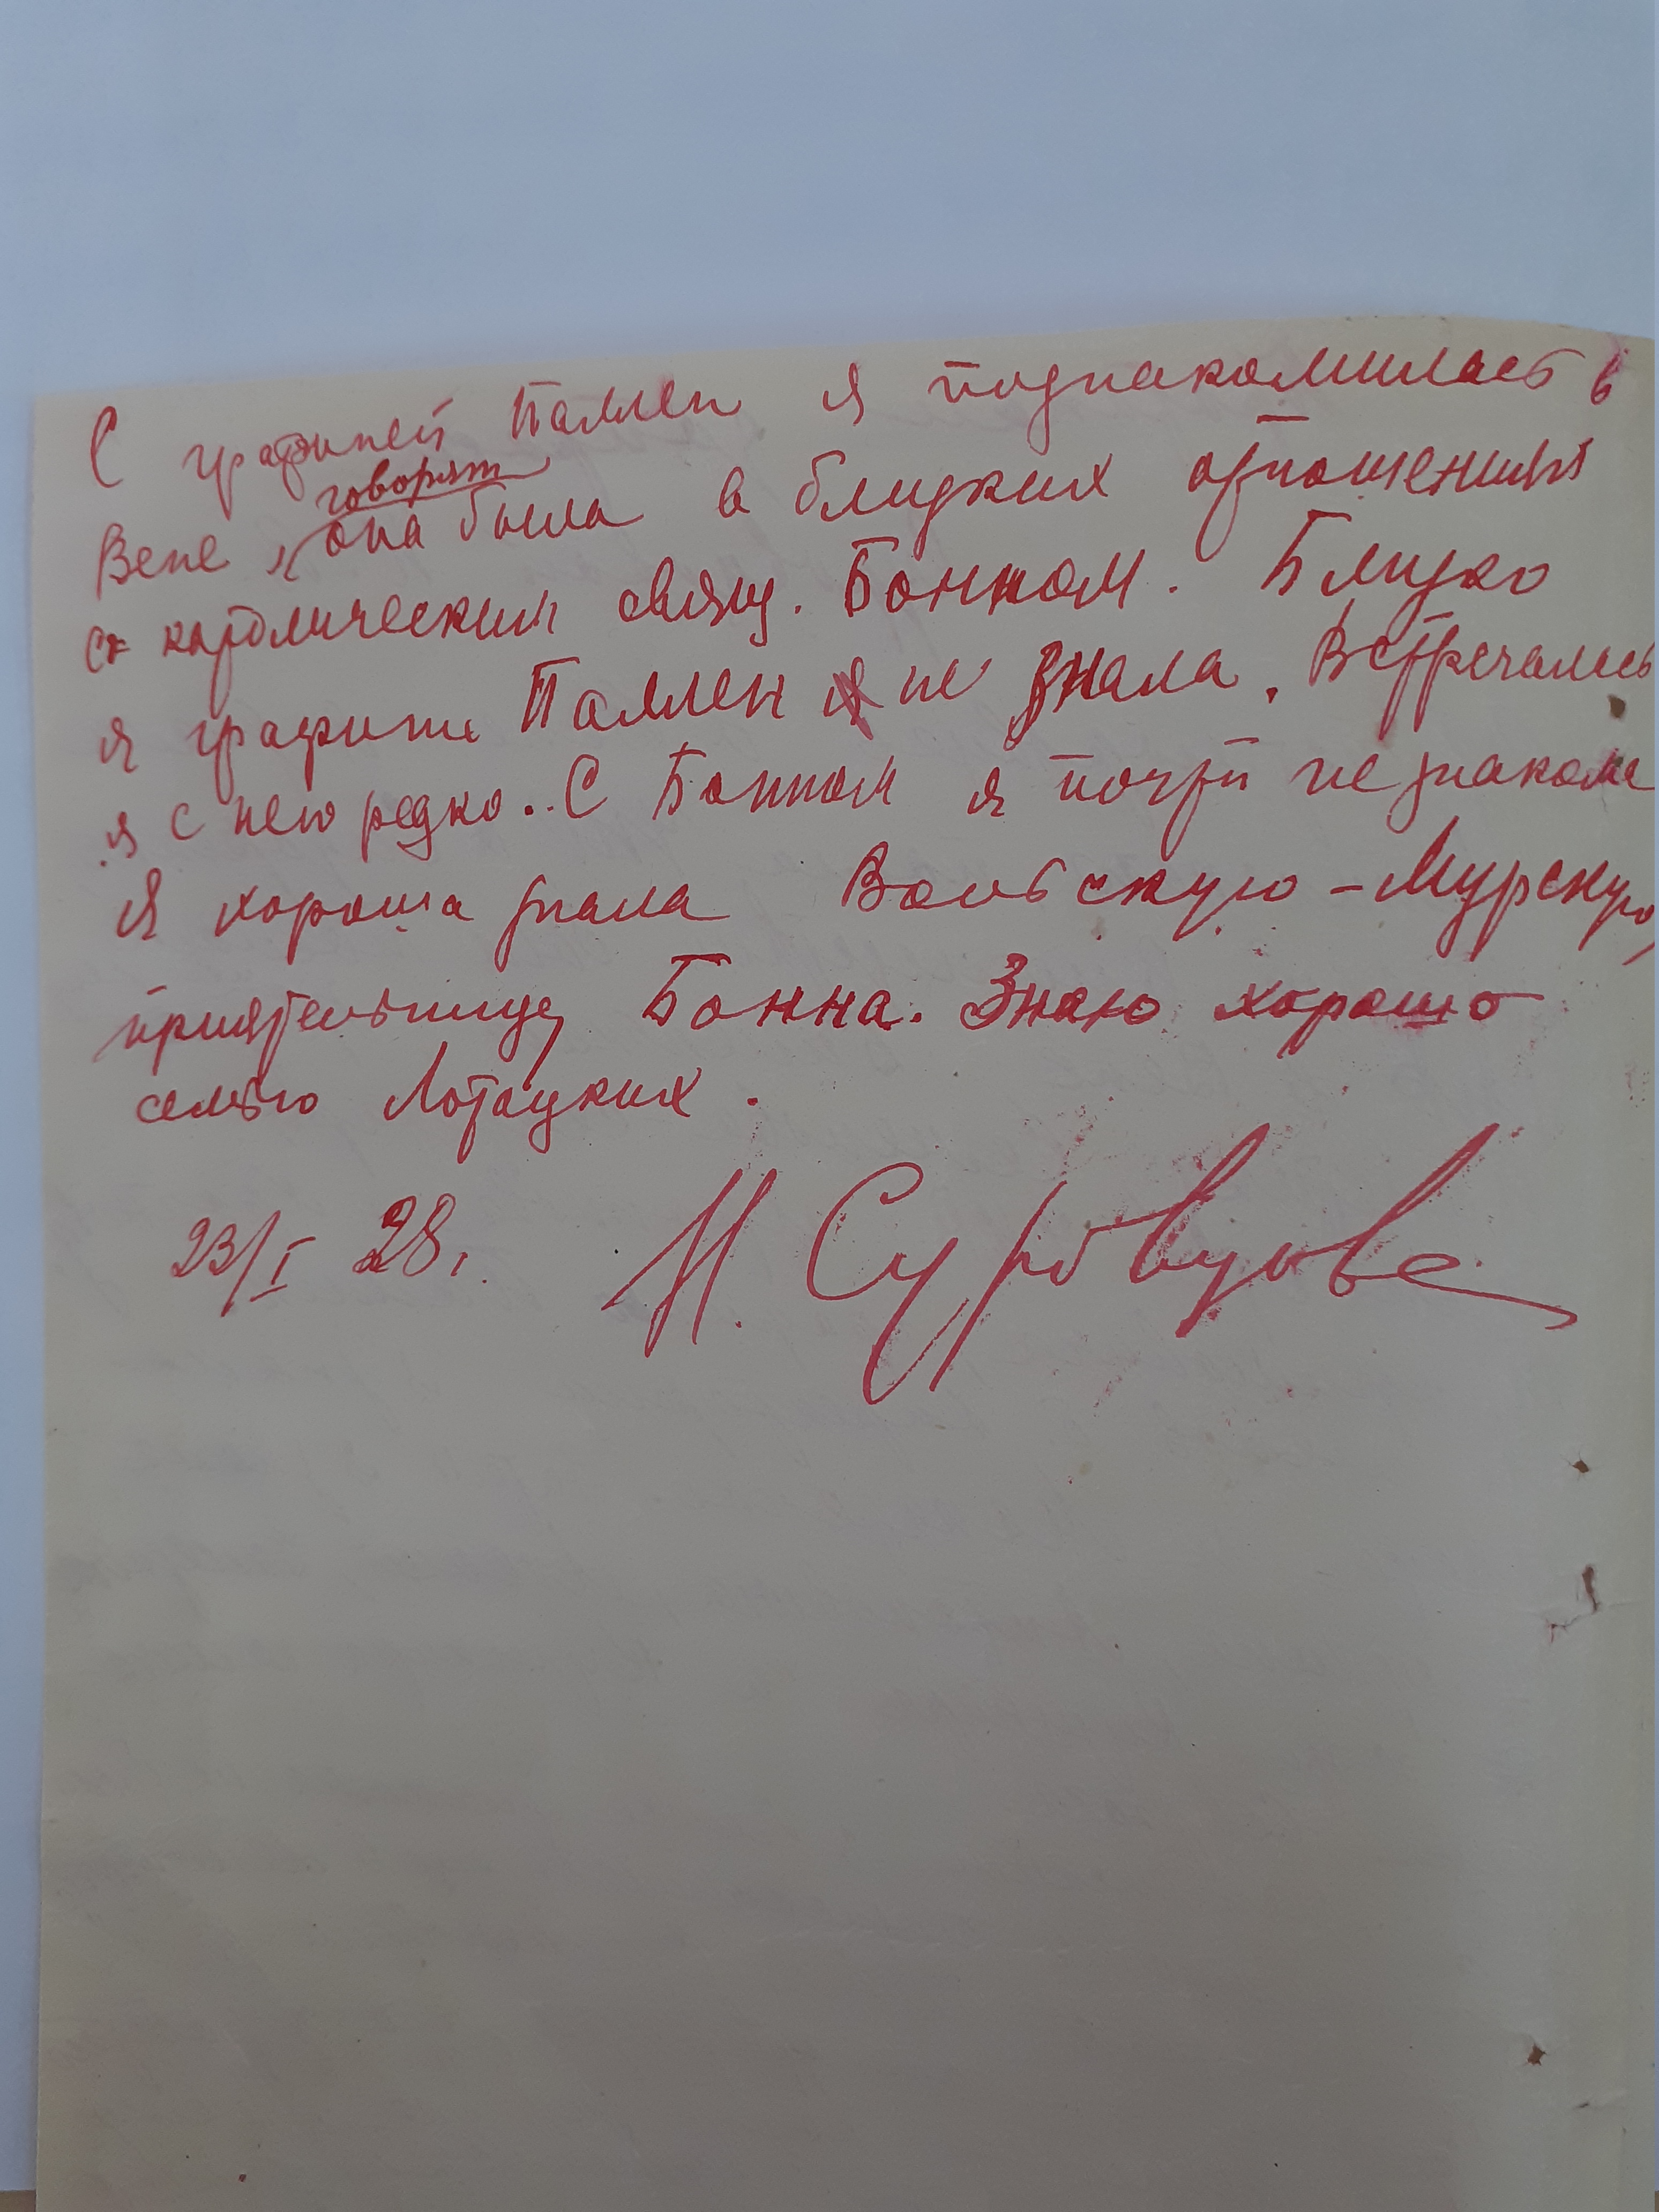 С графиней Пален я познакомилась в
говорят
Вене, она была в близких отношениях
с католическим свящ. Бонном. Близко
я графини Пален я не знала. Встречалась
я с нею редко.. С Бонном я почти не знакома
Я хорошо знала Вольскую-Мурскую,
приятельницу Бонна. Знаю хорошо
семью Лотацких.
23/I 28. Н. Суровцова